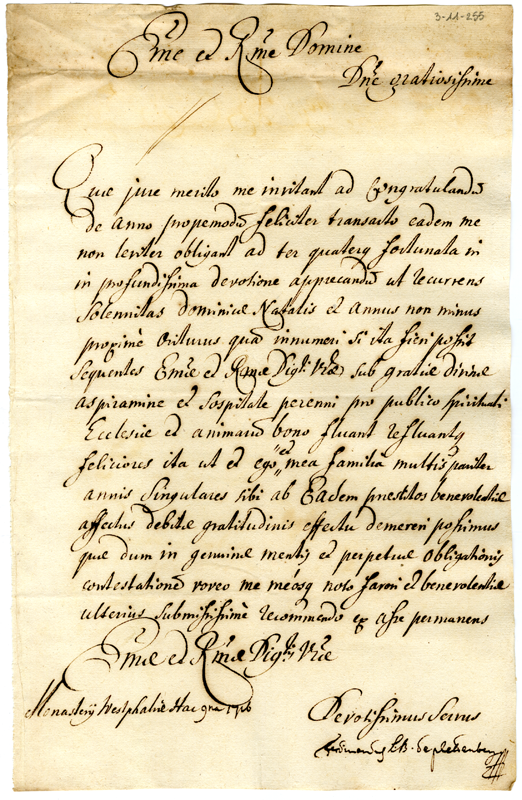 3-11-255
Em̄e et Rm̄e Domine
Dn̄e gratiosissime
Quæ jure merito me invitant ad Congratulandū
de Anno propemodū feliciter transacto eadem me
non leviter obligant ad ter quaterq fortunata in
in profundissima devotione apprecandū ut recurrens
Solennitas dominicæ Natalis et Annus non minus
proximè Oriturus quā innumeri si ita fieri possit
Sequentes Em̄æ et Rm̄æ Digti Vr̄æ sub gratiæ divinæ
aspiramine et Sospitate perenni pro publico spirituali
Ecclesiæ et animarū bono fluant refluantq
feliciores ita ut et ego et mea familia multis pariter
annis Singulares sibi ab Eadem prestitos benevolentiæ
affectus debitæ gratitudinis effectu demereri possimus
quæ dum in genuinæ mentis et perpetuæ obligationis
contestationē voveo me meosq noto favori et benevolentiæ
ulterius submississimè recommendo ex asse permanens
Em̄æ et Rm̄æ Digtis Vr̄æ
Monasterij Westphaliæ Hac 1716
Devotissimus Servus
Ferdinandus LB. de Plettenberg